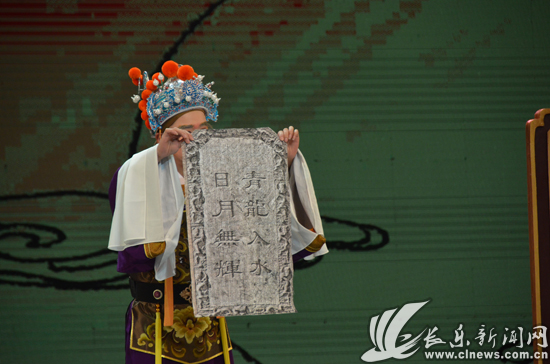 青龍入水
日月無輝
长乐新闻网
www.clnews.com.cn